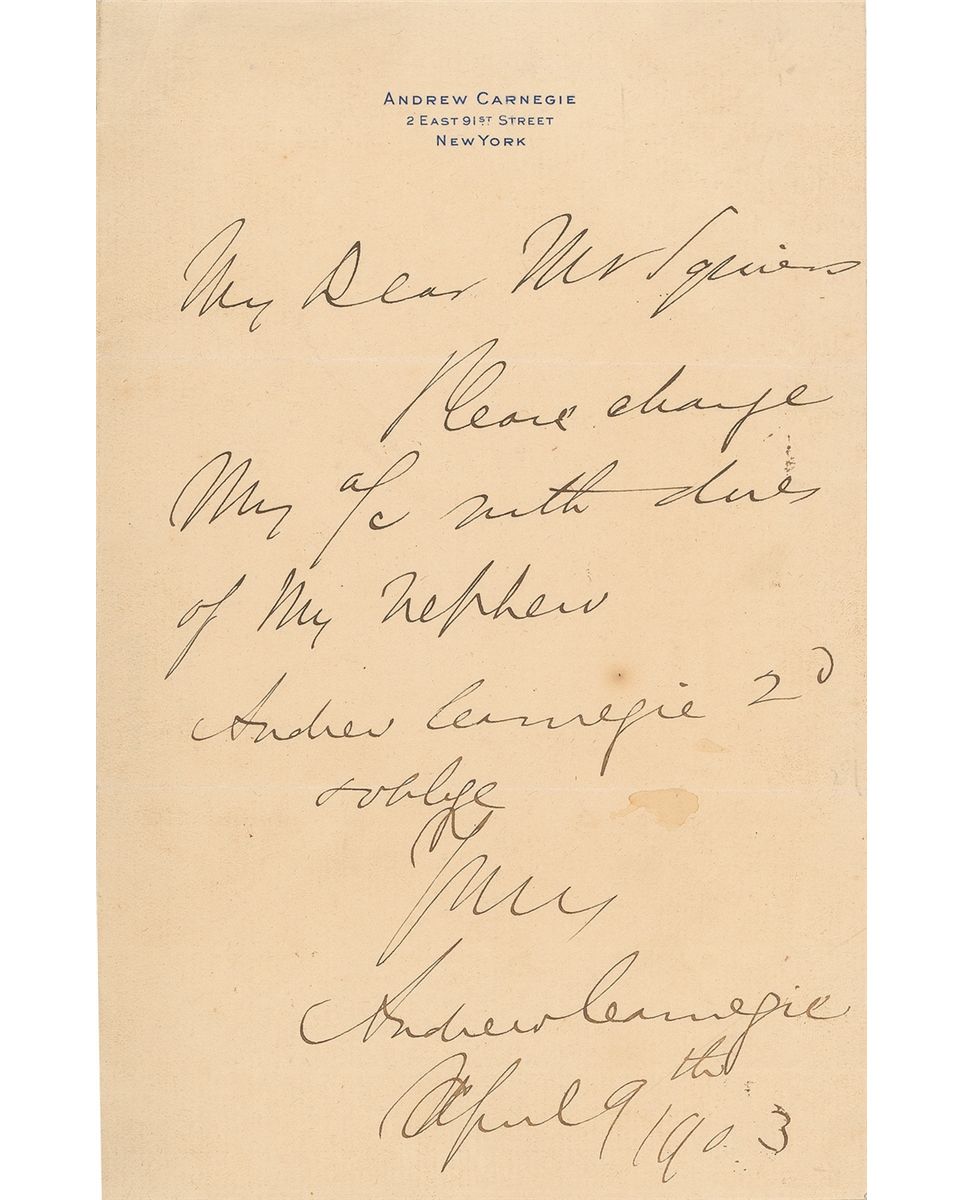 ANDREW CARNEGIE
2 EAST 91ST STREET
NEW YORK
My Dear Mr Squiers
Please charge
My a/c with dues
of My Nephew
Andrew Carnegie 2d
& oblige
Yours
Andrew Carnegie
April 9th 1903